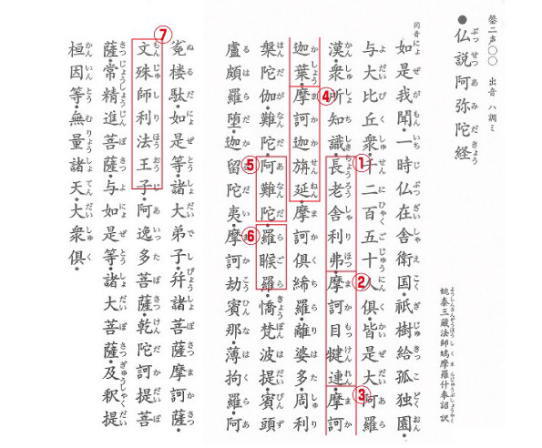 磬二声〇〇 出音 ハ調ミ
●仏説阿弥陀経
姚秦三蔵法師鳩摩羅什奉詔訳
同音
如是我聞・一時仏在舎衛国・祇樹給孤独園・
与大比丘衆・千二百五十人俱・皆是大阿羅
漢・衆所知識・①長老舎利弗・②摩訶目犍連・③摩訶
迦葉・④摩訶迦旃延・摩訶俱絺羅・離婆多・周利
槃陀伽・難陀・⑤阿難陀・⑥羅睺羅・憍梵波提・賓頭
盧頗羅堕・迦留陀夷・摩訶劫賓那・薄拘羅・阿
菟楼駄・如是等・諸大弟子・并諸菩薩摩訶薩・
⑦文殊師利法王子・阿逸多菩薩・乾陀訶提菩
薩・常精進菩薩・与如是等・諸大菩薩・及釈提
桓因等・無量諸天・大衆俱・